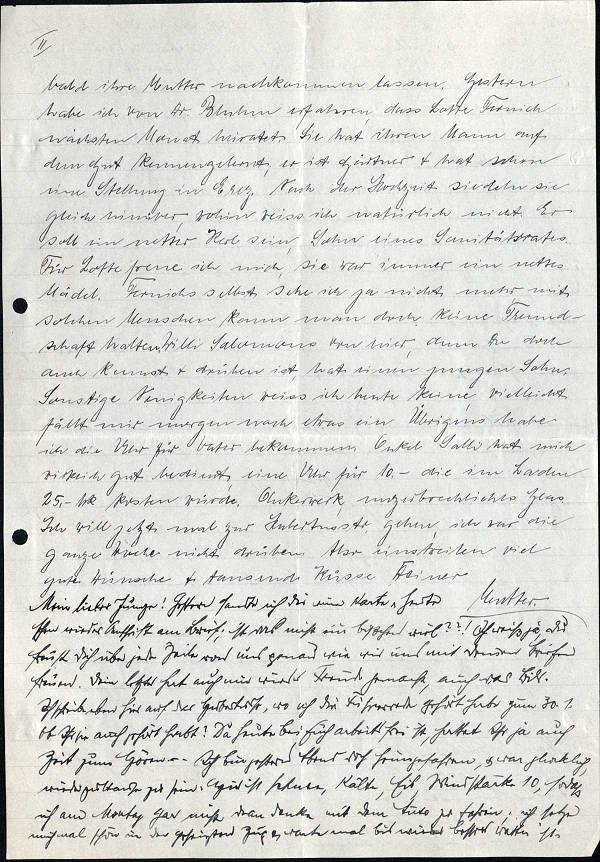 II
bald ihre Mutter nachkommen lassen. Gestern
habe ich von Dr. Bluhm erfahren, dass Lotte Fernich
nächsten Monat heiratet. Sie hat ihren Mann auf
dem Gut kennengelernt, er ist Gärtner & hat schon
eine Stellung in Erez. Nach der Hochzeit siedeln sie
gleich hinüber, wohin weiss ich natürlich nicht. Er
soll ein netter Kerl sein, Sohn eines Sanitätsrates.
Für Lotte freue ich mich, sie war immer ein nettes
Mädel. Fernichs selbst sehe ich ja nicht mehr, mit
solchen Menschen kann man doch keine Freund-
schaft halten. Willi Salomons von hier, denn Du doch
auch kennst & drüben ist, hat einen jungen Sohn.
Sonstige Neuigkeiten weiss ich heute keine, vielleicht
fällt mir morgen noch etwas ein. Übrigens habe
ich die Uhr für Vater bekommen. Onkel Salli hat mich
wirklich gut bedient, eine Uhr für 10,- die im Laden
25,- Mk kosten würde. Ankerwerk, unzerbrechliches Glas.
Ich will jetzt mal zur Hubertusstr. gehen, ich war die
ganze Woche nicht drüben. Also einstweilen viel
gute Wünsche & tausend Küsse Deiner
Mutter.
Mein lieber Junge! Gestern sandte ich dir eine Karte, heute
wieder am Brief, ist das nicht ein bisschen viel??! Ich weiss ja, du
freust dich über jede Zeile von uns genau wie wir uns mit deinen Briefen
freuen. Dein letzter hat auch mir wieder Freude gemacht, auch das Bild.
wo ich die Führerrede gehört habe zum 30.1.
Ob Ihr sie auch gehört habt? Da heute bei Euch arbeitsfrei ist, hattet Ihr ja auch
Zeit zum Hören -- Ich bin gestern Abend noch heimgefahren, & war glücklich,
wieder zu Hause zu sein. Schnee, Kälte, Eis, Windstärke 10, sodass
ich am Montag gar nicht dran denke mit dem Auto zu fahren; ich setze
mich mal schön in den geheizten Zug & warte mal bis wieder besseres Wetter ist.